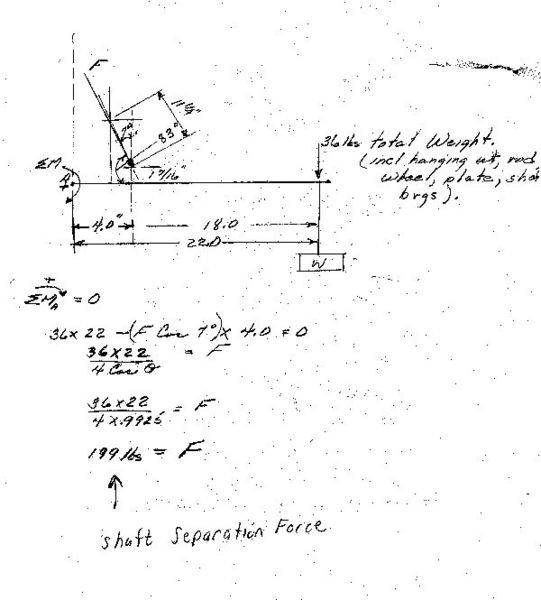 F
7°
83°
1 3/16"
ΣM
A
36 lbs total Weight.
(incl hanging wt, rod
wheel, plate, shaft
brgs).
4.0"
18.0
22.0
W
+
ΣM_A = 0
36 x 22 - (F Cos 7°) x 4.0 = 0
36 x 22 / 4 Cos θ = F
36 x 22 / 4 x .9925 = F
199 lbs = F
↑
shaft Separation Force